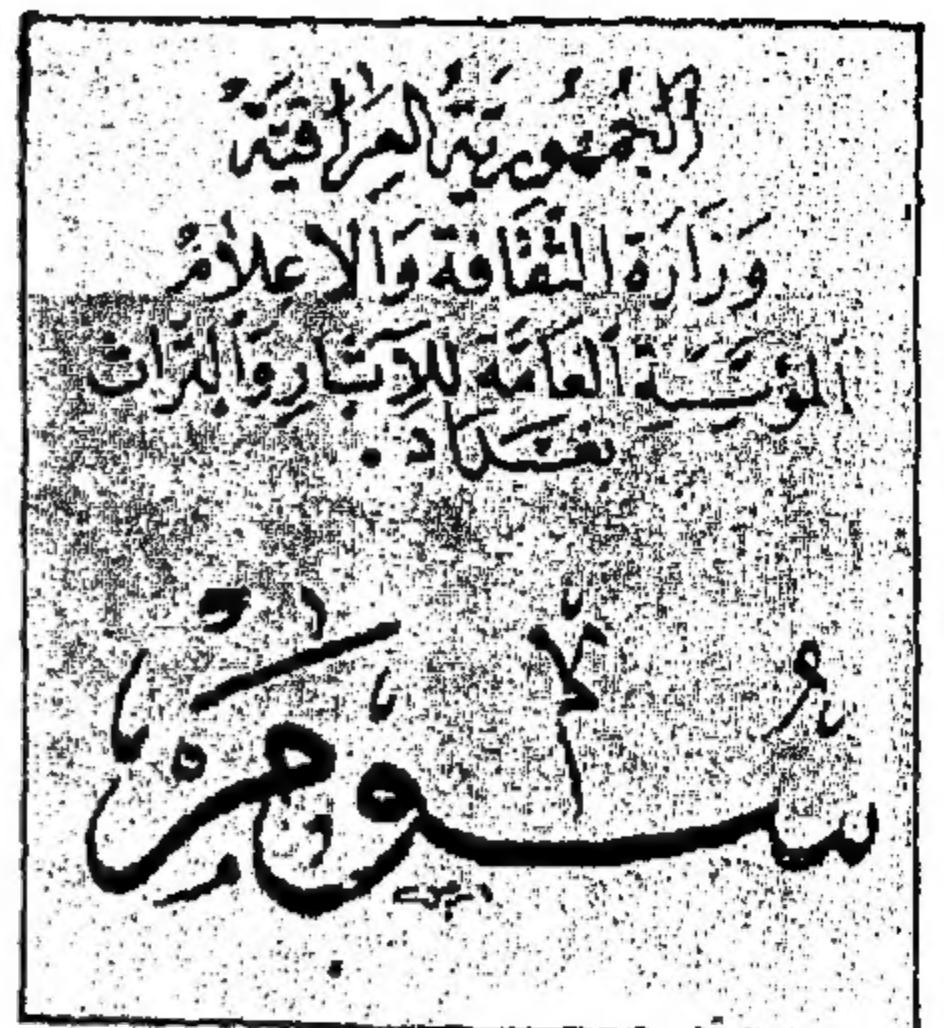 الجُمهُوريَّةُ العِرَاقيَّة
وَزَارَة الثقَافة وَالاعلامُ
المؤسَّسَة العَامَّة للآثَارِ وَالتراث
بغداد .
سُومَر